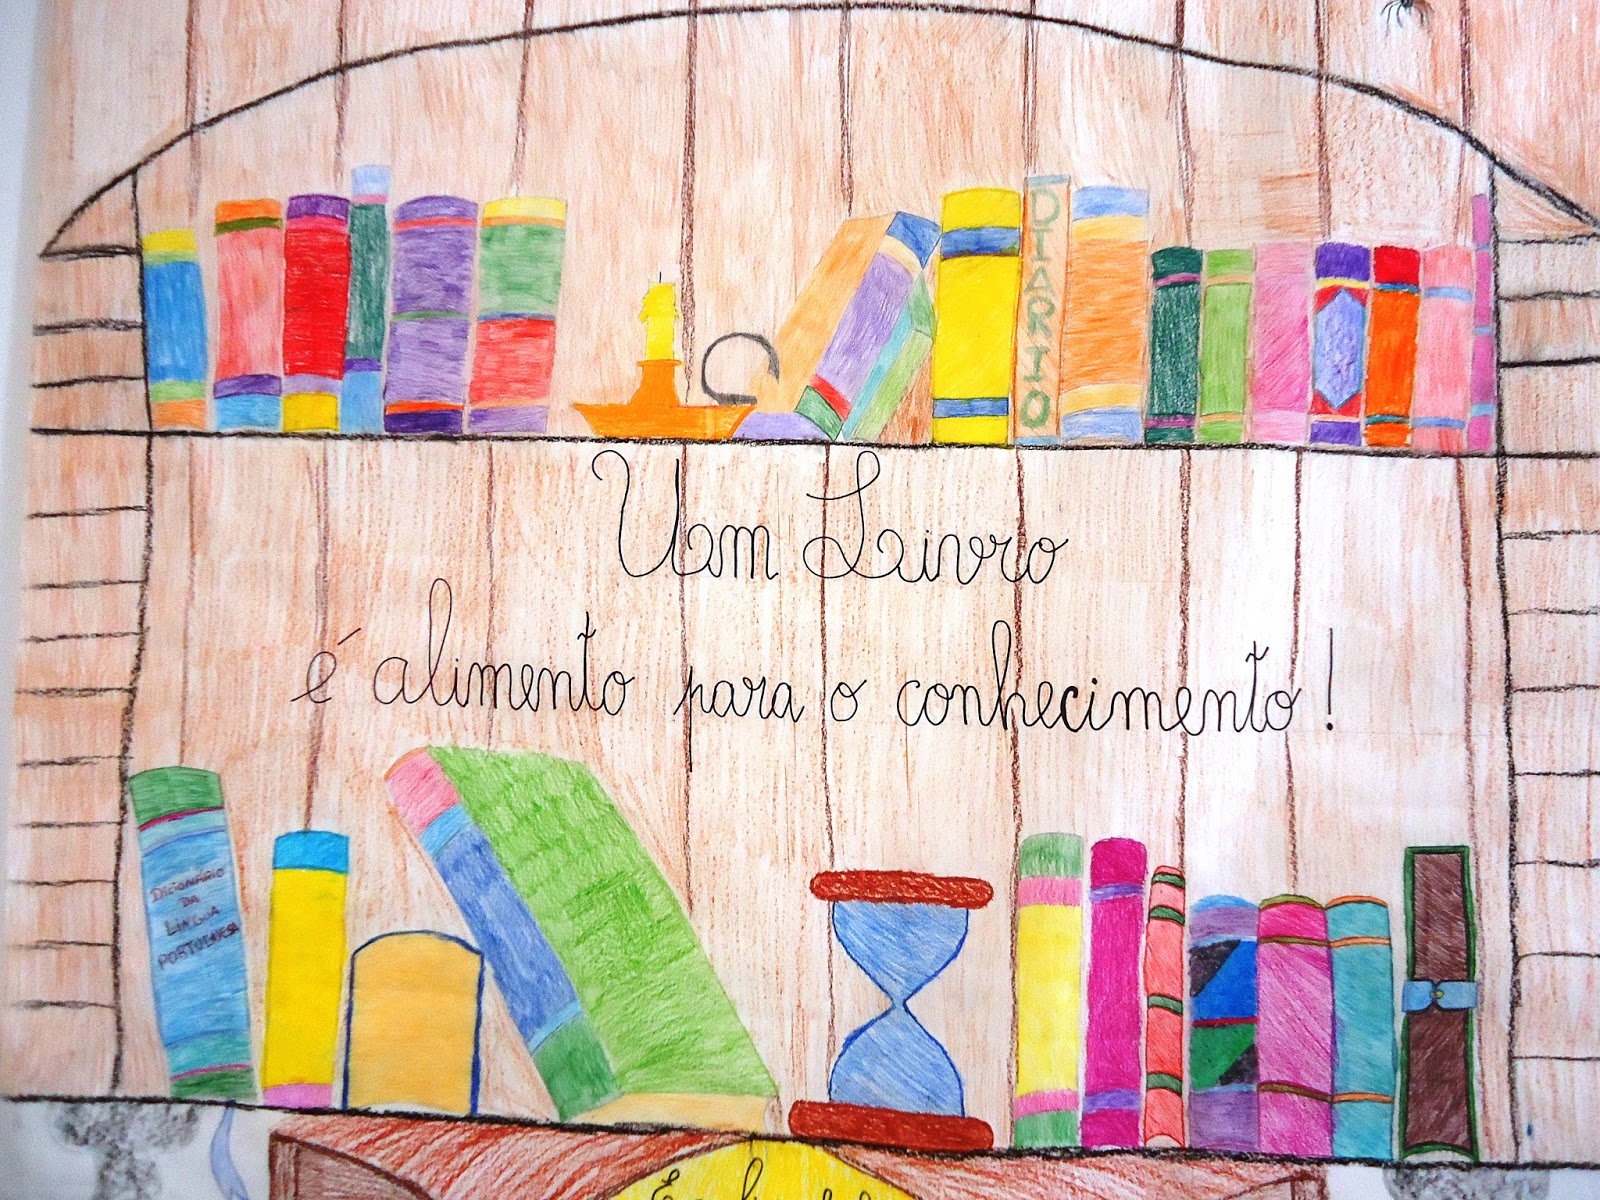 DIÁRIO
Um Livro
é alimento para o conhecimento!
DICIONÁRIO
DA
LÍNGUA
PORTUGUESA